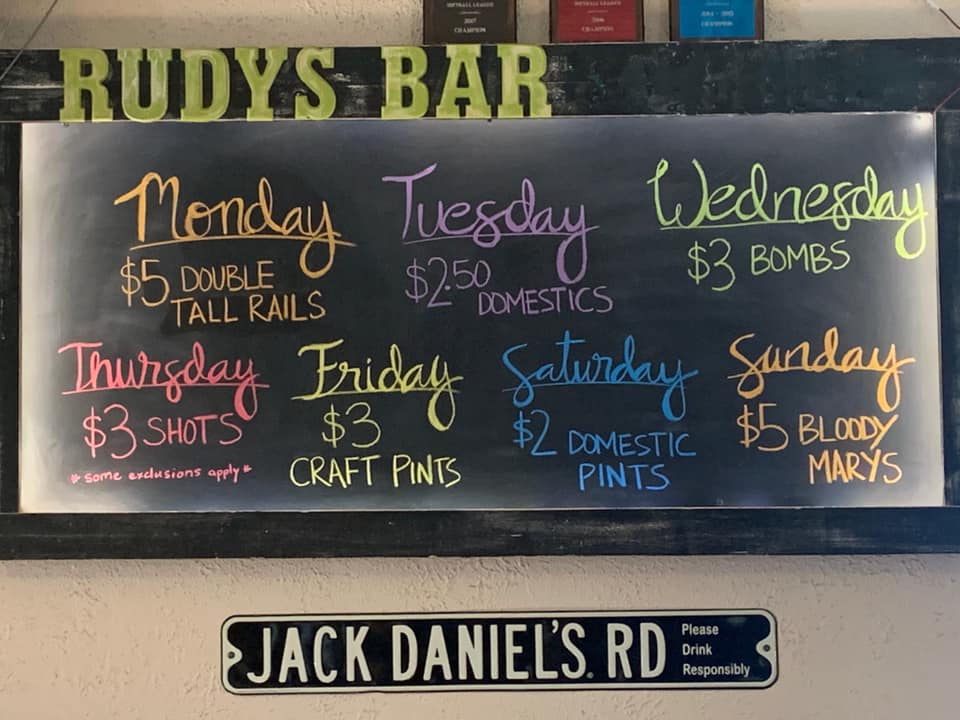 SOFTBALL LEAGUE
2007
CHAMPION
SOFTBALL LEAGUE
2006
CHAMPION
CHAMPION
RUDYS BAR
Monday
$5 DOUBLE
TALL RAILS
Tuesday
$2.50
DOMESTICS
Wednesday
$3 BOMBS
Thursday
$3 SHOTS
*some exclusions apply*
Friday
$3
CRAFT PINTS
Saturday
$2 DOMESTIC
PINTS
Sunday
$5 BLOODY
MARYS
JACK DANIEL'S. RD
Please
Drink
Responsibly